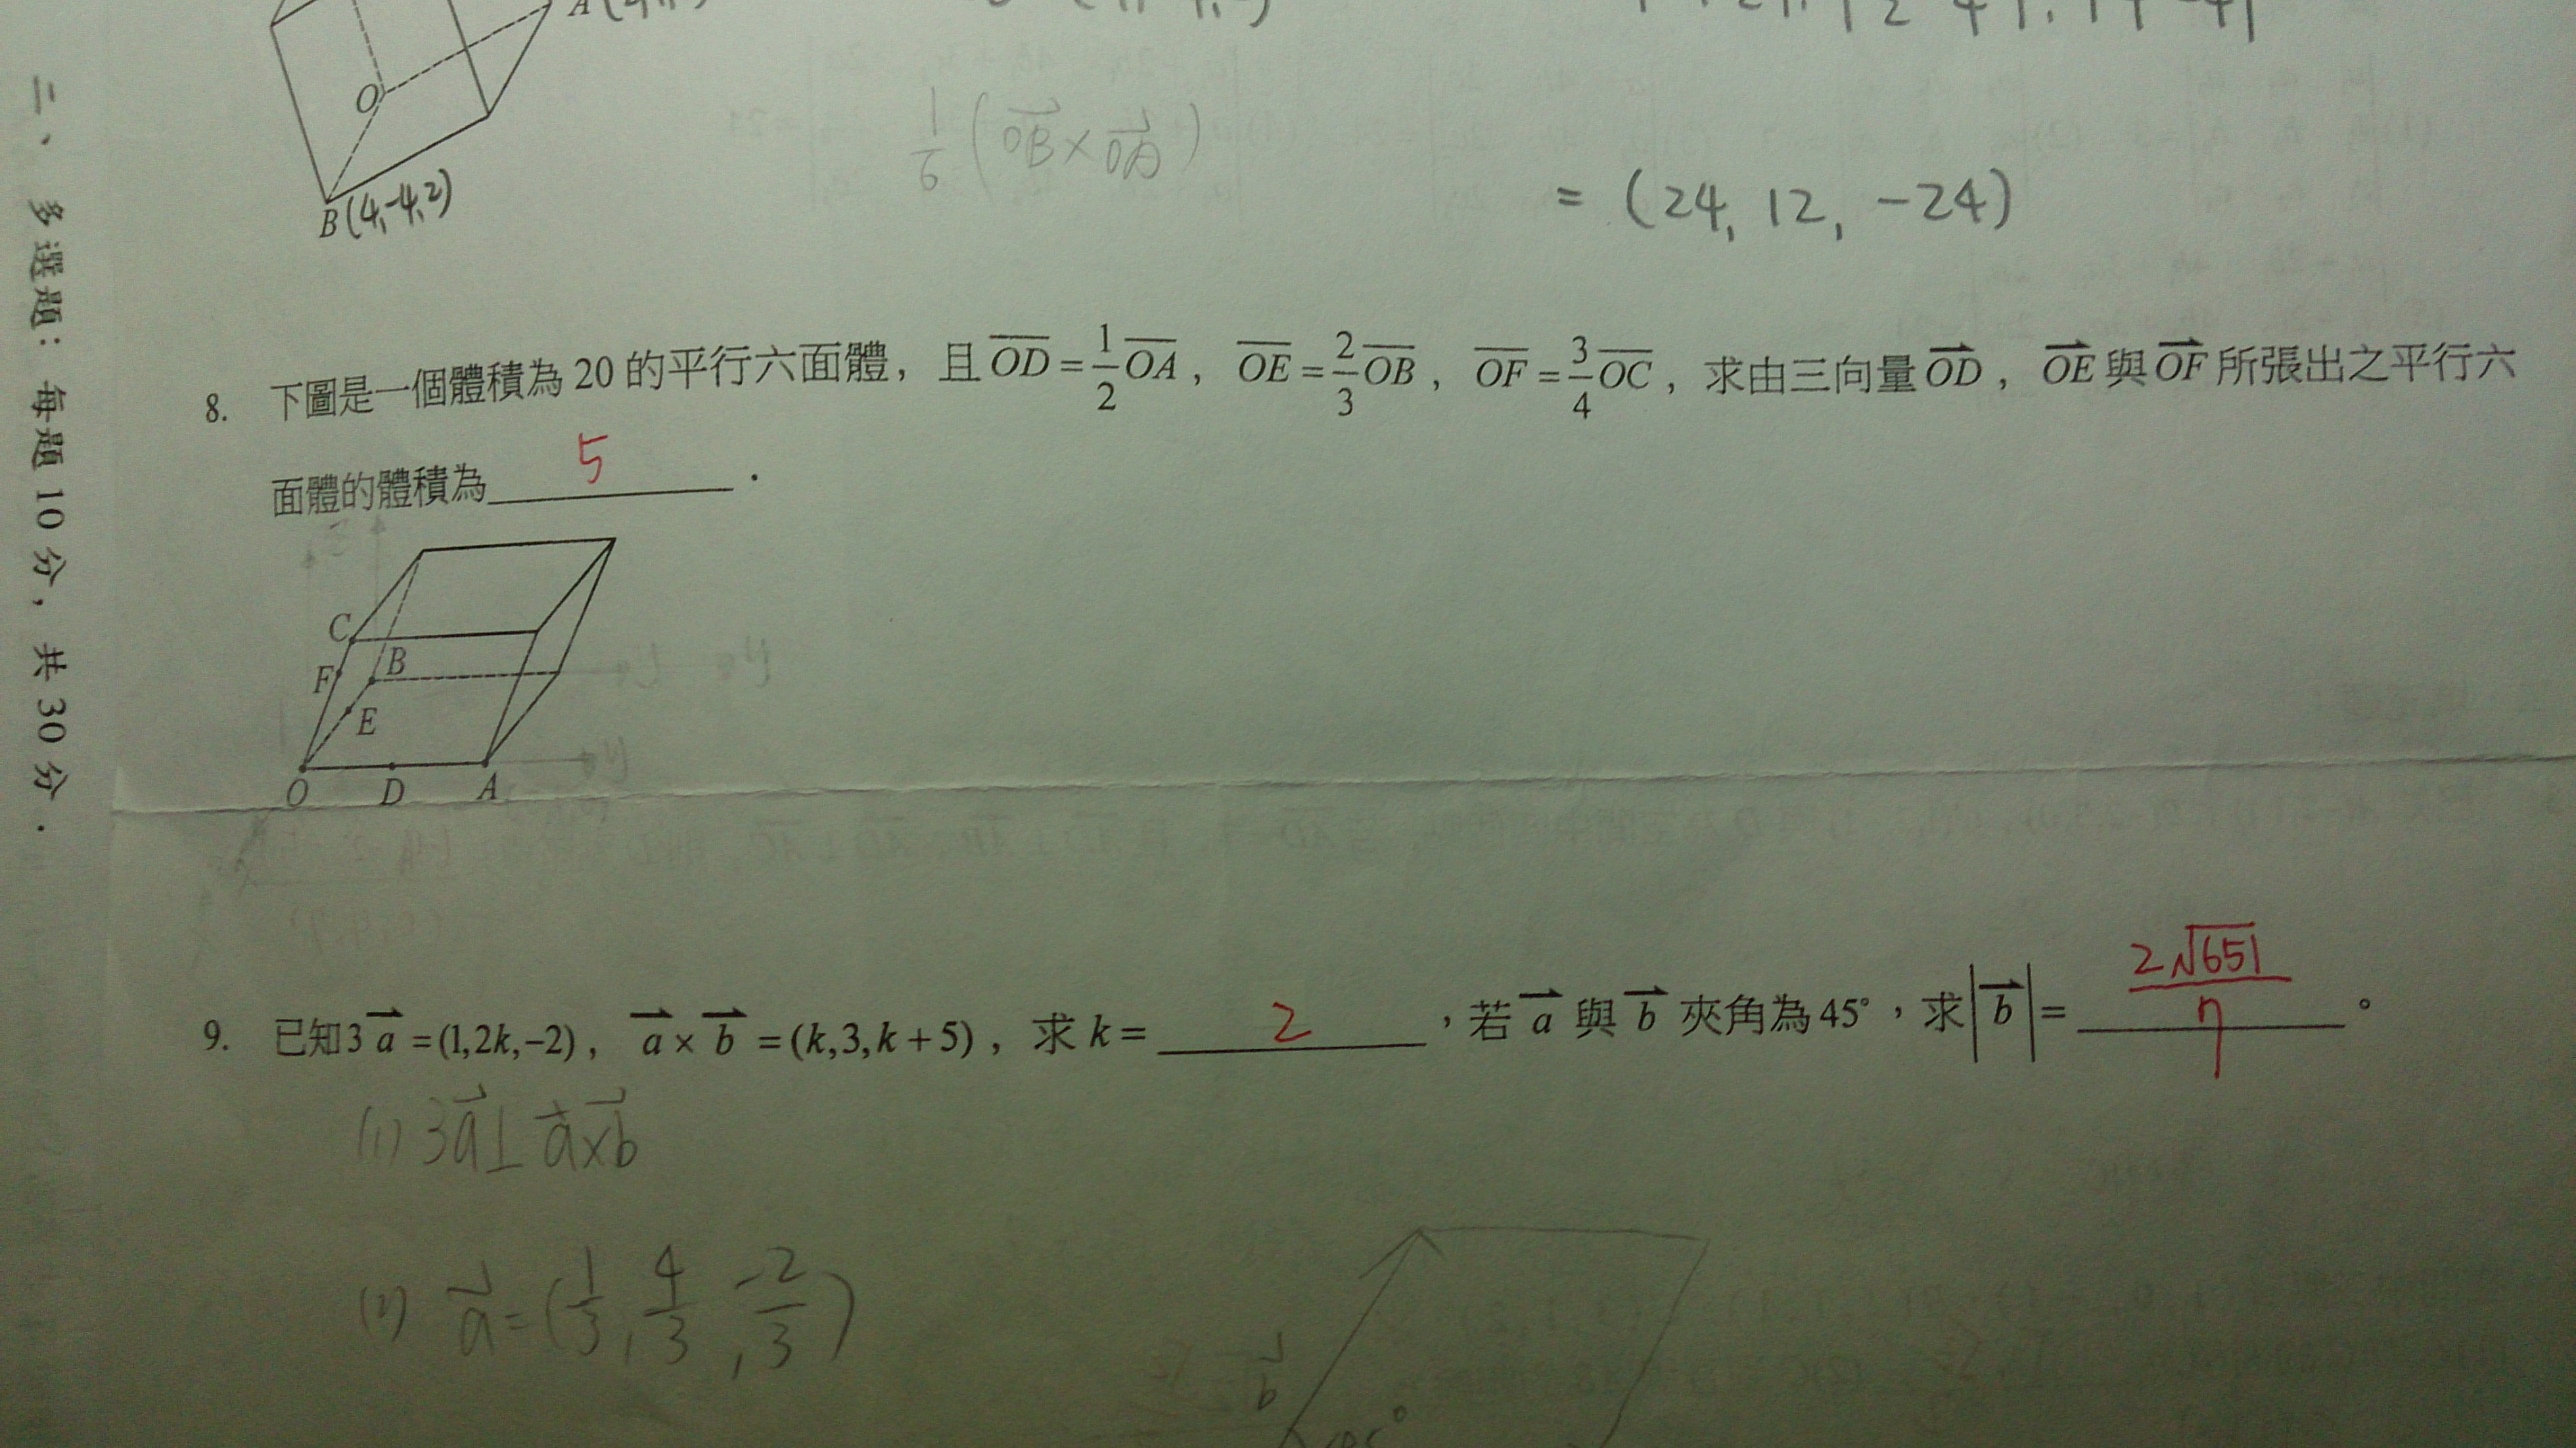 O
B(4,-4,2)
1/6 (OB×OA)
= (24, 12, -24)
二、多選題：每題10分，共30分．
8. 下圖是一個體積為20的平行六面體，且OD=1/2 OA，OE=2/3 OB，OF=3/4 OC，求由三向量OD，OE與OF所張出之平行六
面體的體積為 5 ．
C
F
B
E
O D A
9. 已知3a=(1,2k,-2)，a×b=(k,3,k+5)，求k= 2 ，若a與b夾角為45°，求|b|= 2√651/7 。
(1) 3a⊥a×b
(2) a=(1/3, 4/3, -2/3)
b